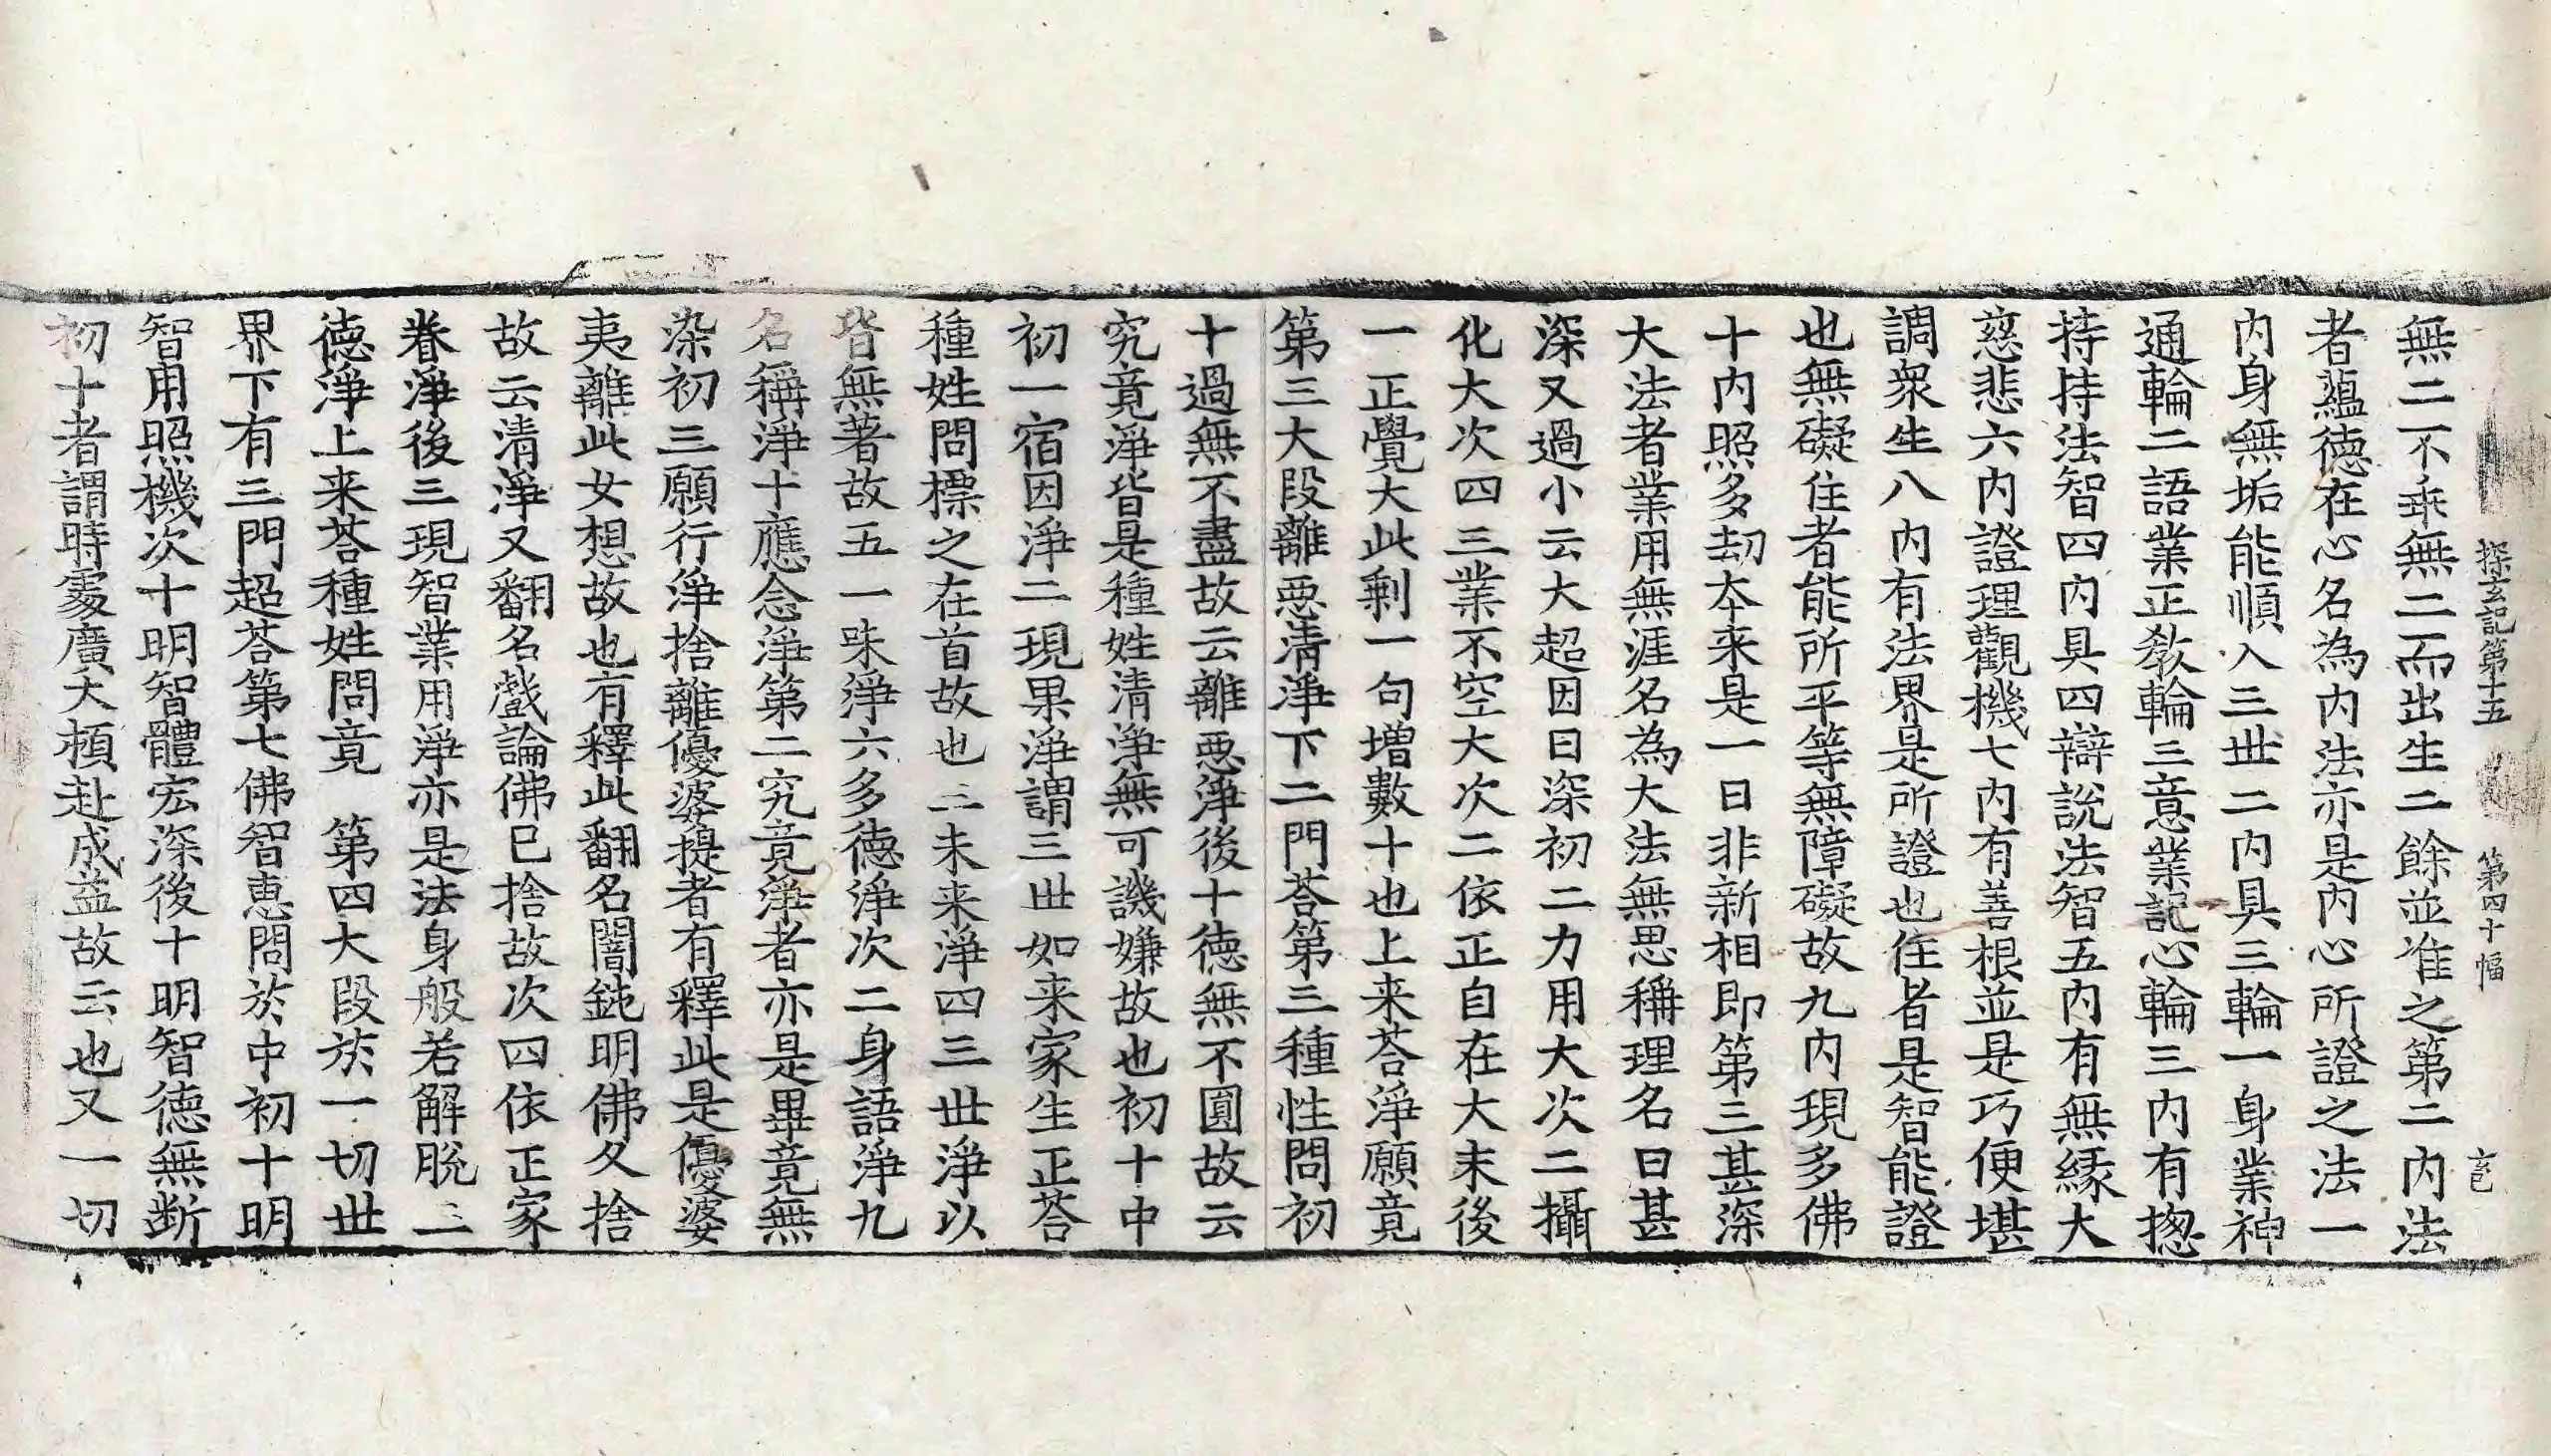 探玄記第十五　第四十幅　玄
無二不乖無二而出生二餘並准之第二内法
者蘊德在心名為内法亦是内心所證之法一
内身無垢能順入三世二内具三輪一身業神
通輪二語業正教輪三意業記心輪三内有揔
持持法智四内具四辯說法智五内有無緣大
慈悲六内證理觀機七内有善根並是巧便堪
調衆生八内有法界是所證也住者是智能證
也無礙住者能所平等無障礙故九内現多佛
十内照多劫本来是一日非新相即第三甚深
大法者業用無涯名為大法無思稱理名曰甚
深又過小云大超因曰深初二力用大次二攝
化大次四三業不空大次二依正自在大末後
一正覺大此剩一句增數十也上来荅淨願竟
第三大段離惡清淨下二門荅第三種性問初
十過無不盡故云離惡淨後十德無不圎故云
究竟淨皆是種姓清淨無可譏嫌故也初十中
初一宿因淨二現果淨謂三世如来家生正荅
種姓問標之在首故也三未来淨四三世淨以
皆無著故五一味淨六多德淨次二身語淨九
名稱淨十應念淨第二究竟淨者亦是畢竟無
染初三願行淨捨離優婆提者有釋此是優婆
夷離此女想故也有釋此翻名闇鈍明佛久捨
故云清淨又翻名戲論佛已捨故次四依正家
眷淨後三現智業用淨亦是法身般若解脫三
德淨上来荅種姓問竟　第四大段於一切世
界下有三門超荅第七佛智恵問於中初十明
智用照機次十明智體宏深後十明智德無断
初十者謂時處廣大頓赴成益故云也又一切